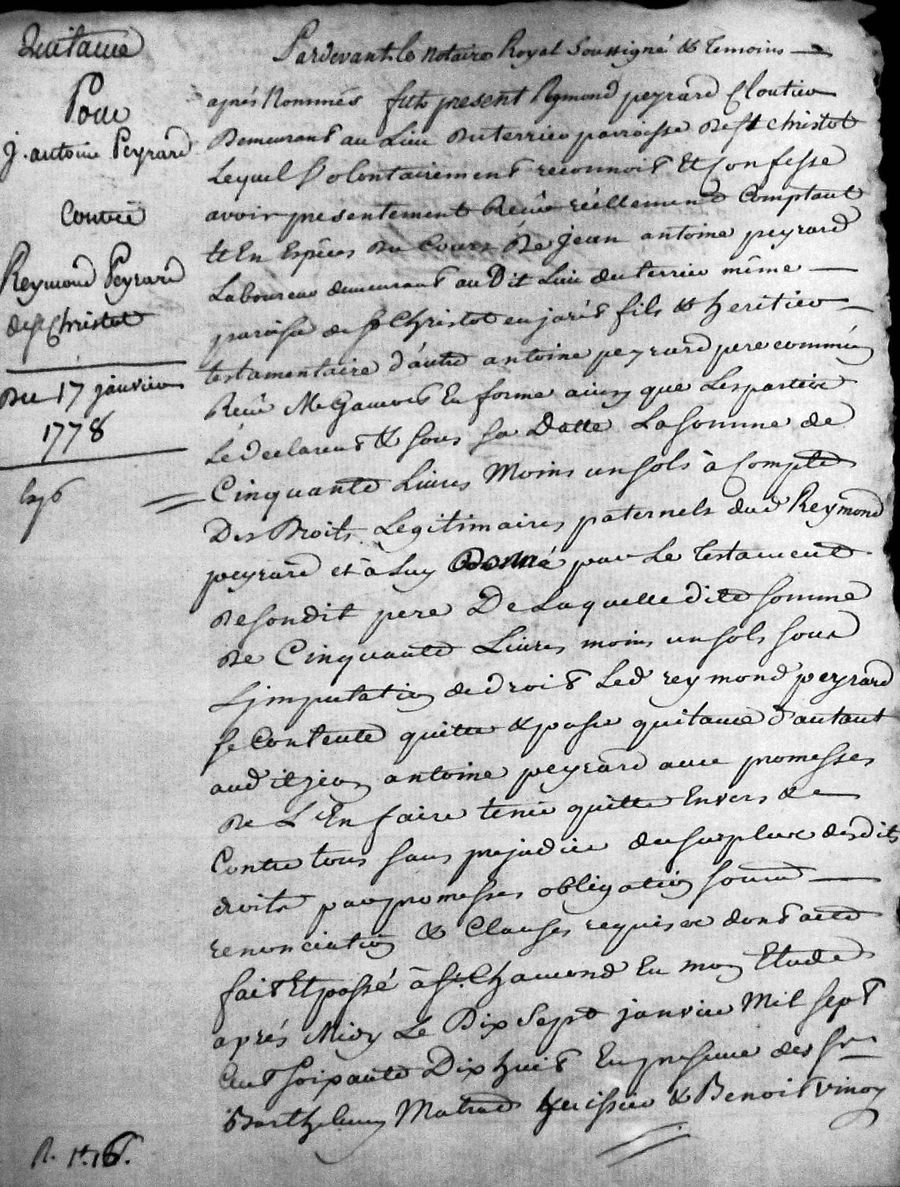 Quitance
Pour
J. antoine Peyrard
Contre
Reymond Peyrard
de St Christot
Du 17 janvier
1778
Pardevant le notaire Royal Soussigné & temoins
aprés Nommés fut present Reymond peyrard Cloutier
Demeurant au Lieu du terrier paroisse de St christot
Lequel volontairement reconnoit Et Confesse
avoir presentement Reçu réellement Comptant
Et En Espèces du Cours de Jean antoine peyrard
Laboureur demeurant au Dit Lieu du terrier même
paroisse de St Christot en jarêt fils & heritier
testamentaire d'autre antoine peyrard pere commun
Reçu Me Gauvet En forme ainsy que Les parties
Le declarent & sous sa Datte La somme de
Cinquante Livres Moins un sols à Compte
Des Droits Legitimaires paternels dud Reymond
peyrard et à Luy Donné par Le testament
de sondit pere De Laquelle dite somme
de Cinquante Livres moins un sols sous
L'imputation de droit Led reymond peyrard
se Contente quitte & passe quitance d'autant
audit jean antoine peyrard avec promesses
de L'En faire tenir quitte Envers &
Contre tous sans prejudice du surplux desdits
droits par promesses obligation soumon
renonciation & Clauses requises dont acte
fait Et passé à St Chamond En mon Etude
aprés Midy Le Dix Sept janvier Mil sept
Cent soixante Dix huit En presence des srs
Barthelemy Matrad huissier & Benoit vinoy
R. 1t. 16s.